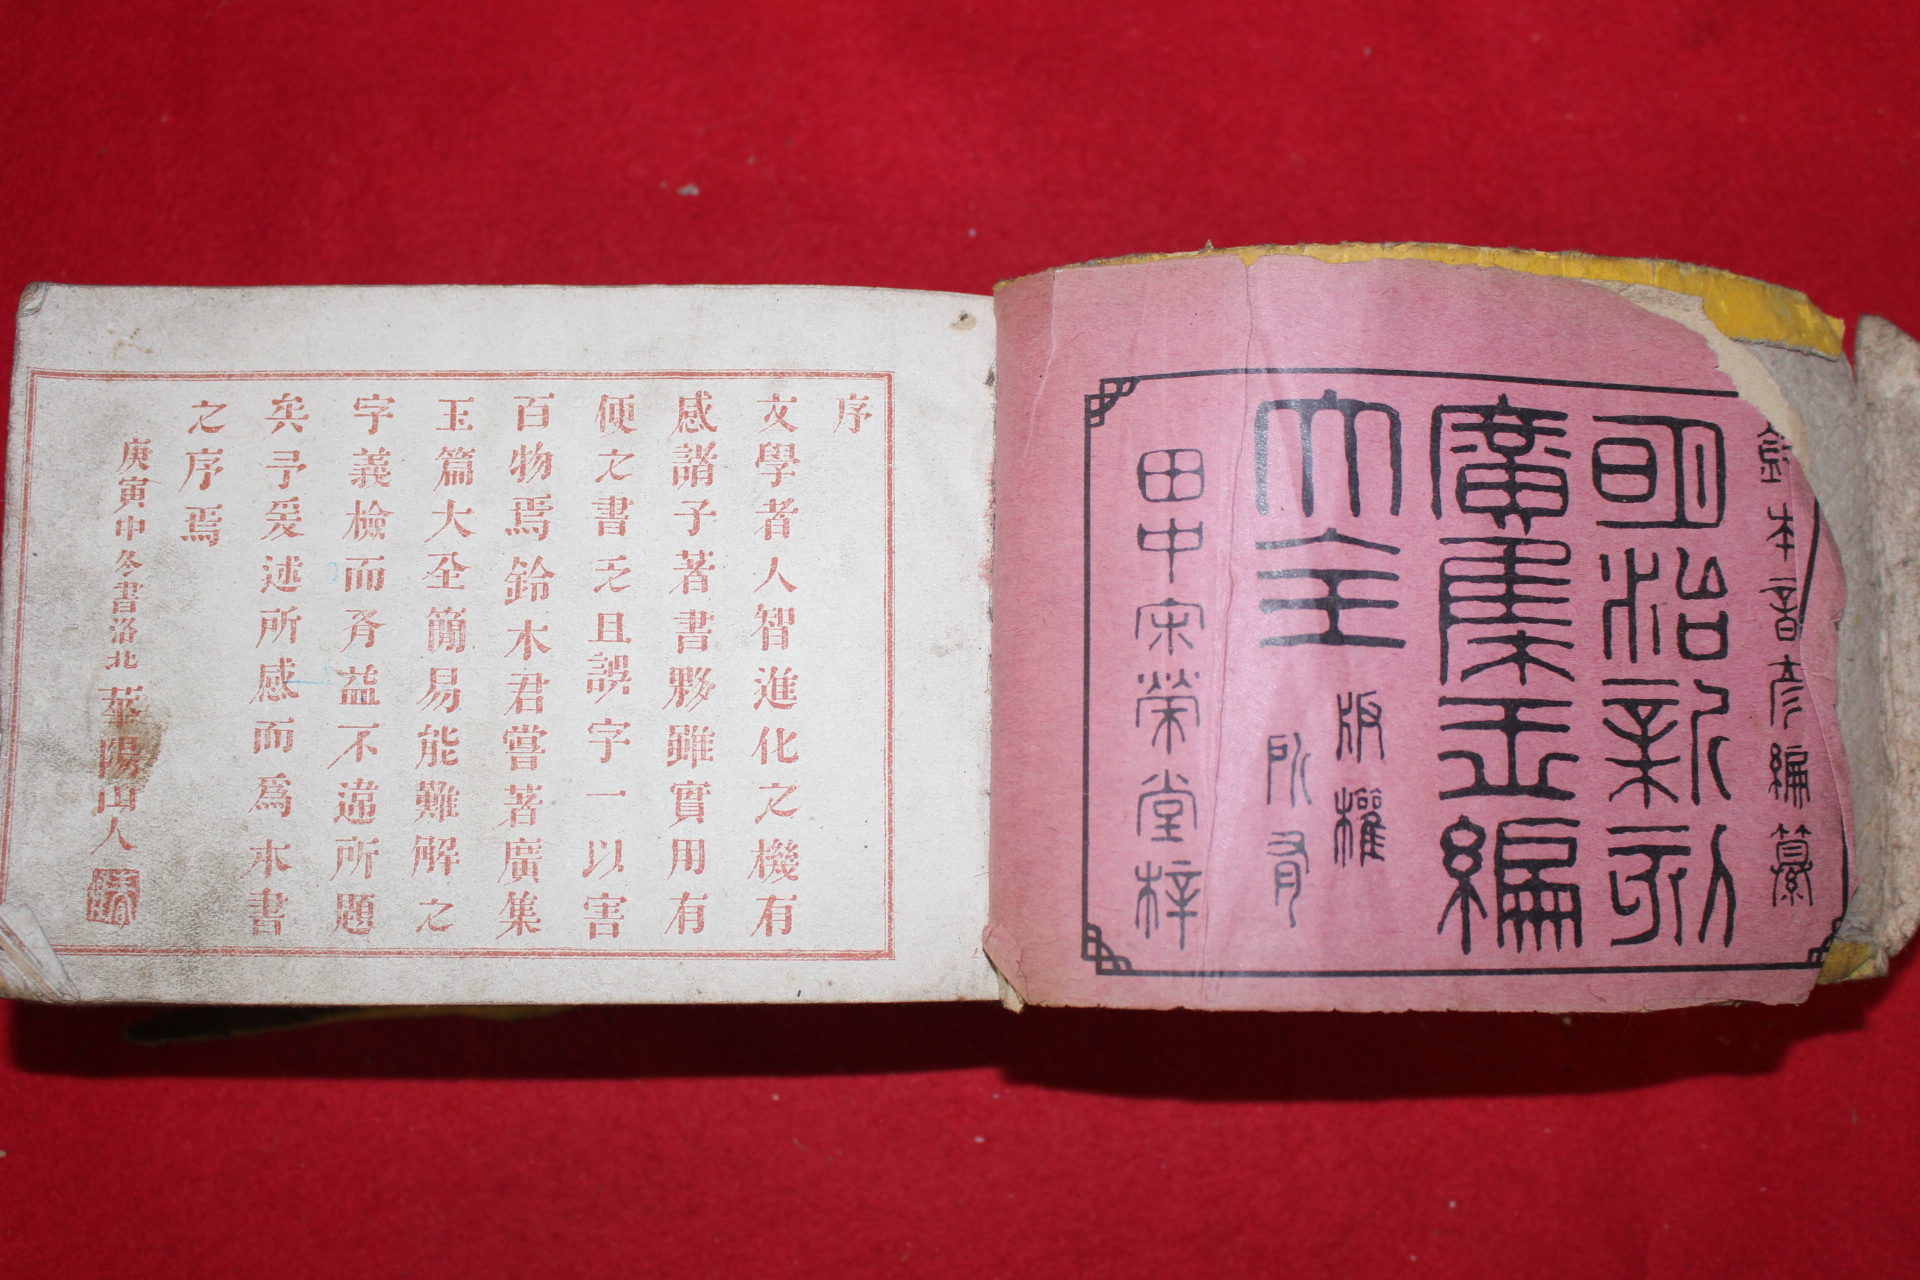 鈴木音彦編纂
明治新刻
廣集玉編
大全
版權
所有
田中宋榮堂梓
序
文學者人智進化之機有
感諸子著書夥雖實用有
便之書乏且誤字一以害
百物焉鈴木君嘗著廣集
玉篇大全簡易能難解之
字義檢而有益不違所題
矣予爰述所感而爲本書
之序焉
庚寅中冬書洛北
華陽山人